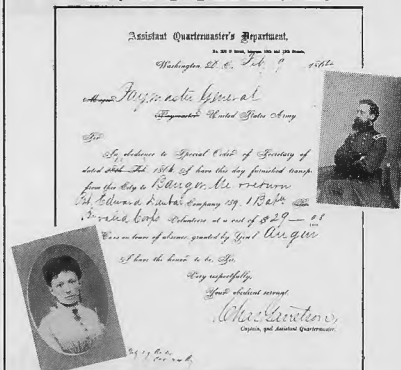 Assistant Quartermaster's Department,
Washington, D. C., Feb 9 1864
Paymaster General
United States Army
Sir
In obedience to Special Order of Secretary of
dated Feb 1864 I have this day furnished transp.
from this City to Bangor Me & return
Edward Company 159. 1 Batn
Invalid Corps Volunteers, at a cost of $29—
leave of absence, granted by Gen'l Augur
I have the honor to be, Sir,
Very respectfully,
Your obedient servant,
Chas Garretson
Captain, and Assistant Quartermaster.